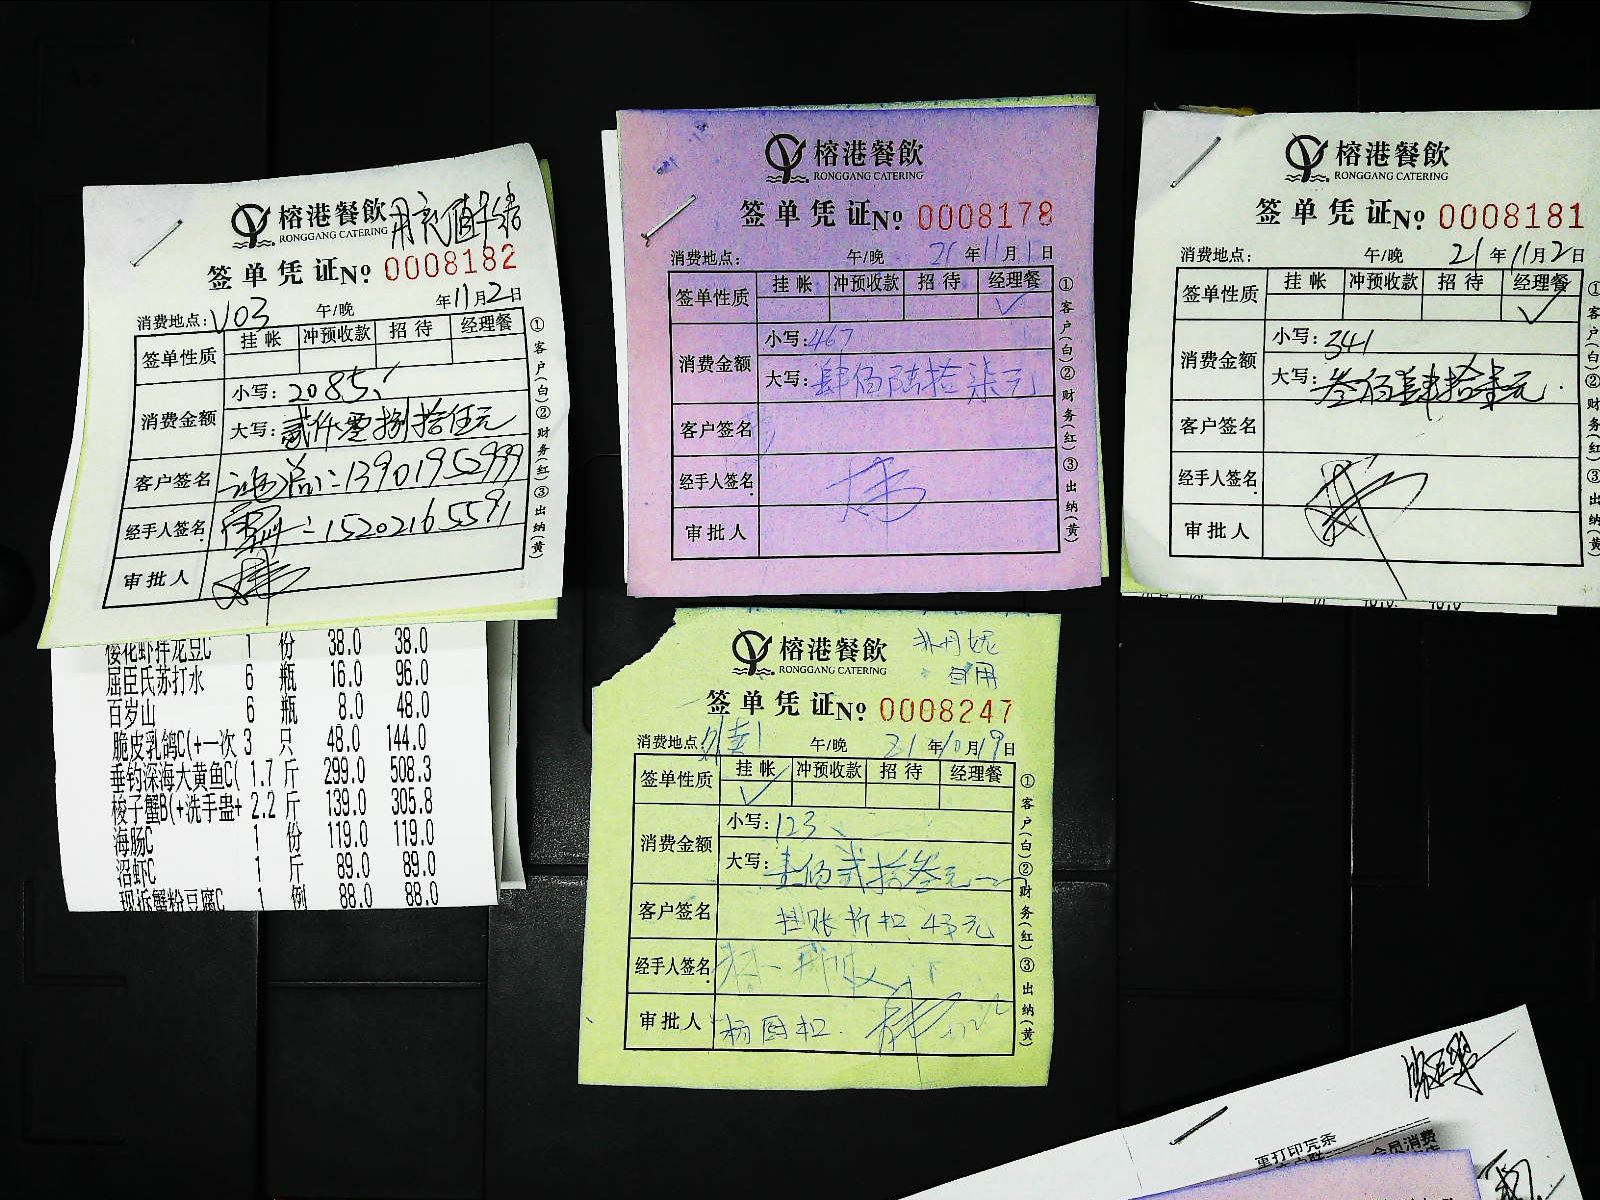 榕港餐飲
RONGGANG CATERING
用充值卡结
签单凭证 No 0008182
消费地点: V03 午/晚 年11月2日
签单性质 挂帐 冲预收款 招待 经理餐
消费金额 小写: 2085
大写: 贰仟零捌拾伍元
客户签名 总: 13901952999
经手人签名 : 15202165591
审批人
①客户(白)②财务(红)③出纳(黄)
樱花虾拌龙豆C 1 份 38.0 38.0
屈臣氏苏打水 6 瓶 16.0 96.0
百岁山 6 瓶 8.0 48.0
脆皮乳鸽C(+一次 3 只 48.0 144.0
垂钓深海大黄鱼C( 1.7 斤 299.0 508.3
梭子蟹B(+洗手蛊+ 2.2 斤 139.0 305.8
海肠C 1 份 119.0 119.0
沼虾C 1 斤 89.0 89.0
现拆蟹粉豆腐C 1 例 88.0 88.0
榕港餐飲
RONGGANG CATERING
签单凭证 No 0008178
消费地点: 午/晚 21年11月1日
签单性质 挂帐 冲预收款 招待 经理餐 ✓
消费金额 小写: 467
大写: 肆佰陆拾柒元
客户签名
经手人签名
审批人
①客户(白)②财务(红)③出纳(黄)
榕港餐飲
RONGGANG CATERING
签单凭证 No 0008181
消费地点: 午/晚 21年11月2日
签单性质 挂帐 冲预收款 招待 经理餐 ✓
消费金额 小写: 341
大写: 叁佰肆拾柒元
客户签名
经手人签名
审批人
①客户(白)②财务(红)③出纳(黄)
榕港餐飲
RONGGANG CATERING
自用
签单凭证 No 0008247
消费地点: 午/晚 21年10月19日
签单性质 挂帐 ✓ 冲预收款 招待 经理餐
消费金额 小写: 123
大写: 壹佰贰拾叁元
客户签名 挂账折扣 43元
经手人签名
审批人
①客户(白)②财务(红)③出纳(黄)
重打印凭条
会员消费